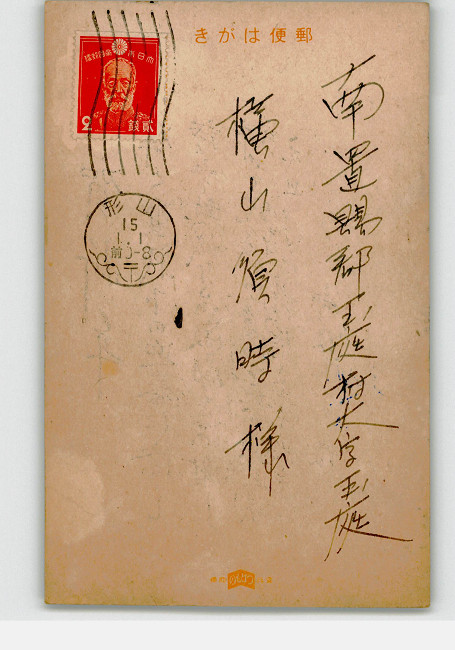 郵便はがき
大日本帝國郵便
2
貳銭
山形
15
1.1
前0-8
南置賜郡玉庭村大字玉庭
横山順時様